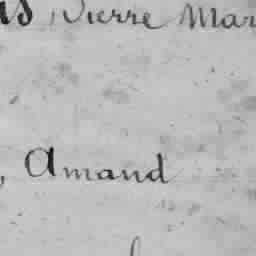 Pierre Mar
, Amand